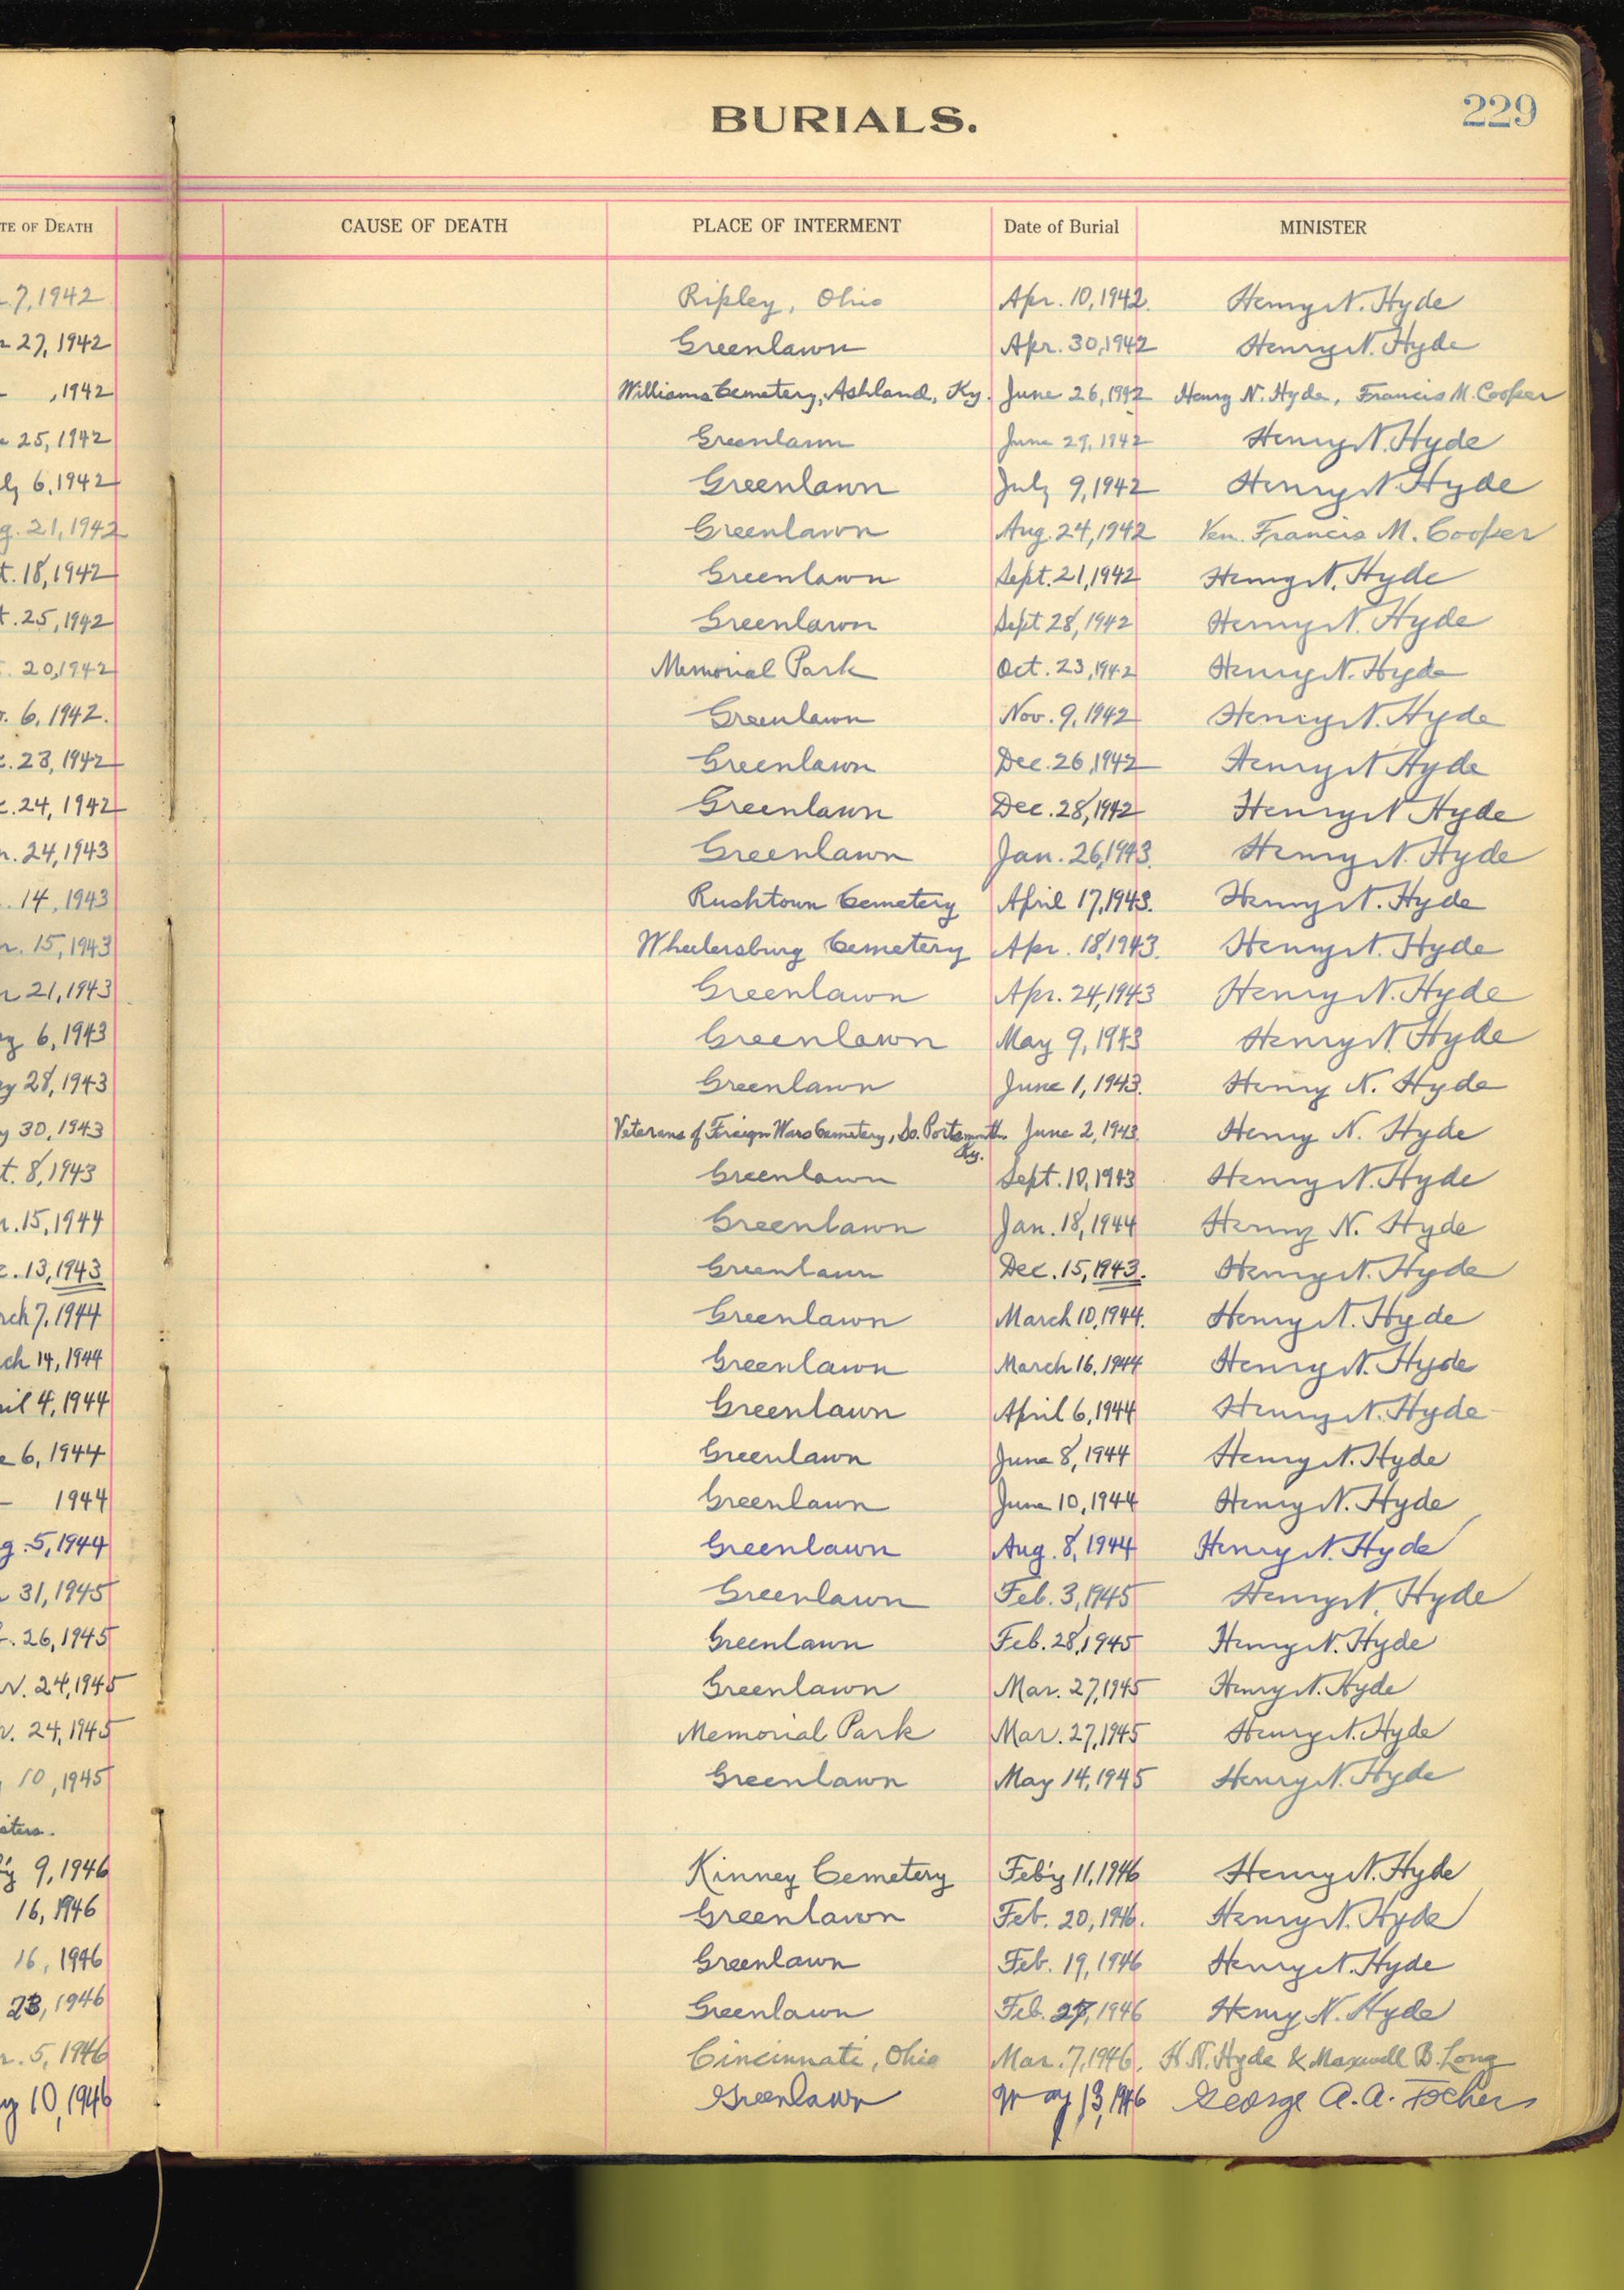 BURIALS.
229
TE OF DEATH CAUSE OF DEATH PLACE OF INTERMENT Date of Burial MINISTER
7, 1942 Ripley, Ohio Apr. 10, 1942. Henry N. Hyde
27, 1942 Greenlawn Apr. 30, 1942 Henry N. Hyde
, 1942 Williams Cemetery, Ashland, Ky. June 26, 1942 Henry N. Hyde, Francis M. Cooper
25, 1942 Greenlawn June 29, 1942 Henry N. Hyde
ly 6, 1942 Greenlawn July 9, 1942 Henry N. Hyde
g. 21, 1942 Greenlawn Aug. 24, 1942 Ven. Francis M. Cooper
t. 18, 1942 Greenlawn Sept. 21, 1942 Henry N. Hyde
t. 25, 1942 Greenlawn Sept 28, 1942 Henry N. Hyde
. 20, 1942 Memorial Park Oct. 23, 1942 Henry N. Hyde
. 6, 1942. Greenlawn Nov. 9, 1942 Henry N. Hyde
c. 23, 1942 Greenlawn Dec. 26, 1942 Henry N Hyde
c. 24, 1942 Greenlawn Dec. 28, 1942 Henry N Hyde
n. 24, 1943 Greenlawn Jan. 26, 1943. Henry N. Hyde
. 14, 1943 Rushtown Cemetery April 17, 1943. Henry N. Hyde
r. 15, 1943 Wheelersburg Cemetery Apr. 18, 1943. Henry N. Hyde
r 21, 1943 Greenlawn Apr. 24, 1943 Henry N. Hyde
y 6, 1943 Greenlawn May 9, 1943 Henry N. Hyde
y 28, 1943 Greenlawn June 1, 1943. Henry N. Hyde
y 30, 1943 Veterans of Foreign Wars Cemetery, So. Portsmouth Ky. June 2, 1943 Henry N. Hyde
t. 8, 1943 Greenlawn Sept. 10, 1943 Henry N. Hyde
n. 15, 1944 Greenlawn Jan. 18, 1944 Henry N. Hyde
c. 13, 1943 Greenlawn Dec. 15, 1943. Henry N. Hyde
rch 7, 1944 Greenlawn March 10, 1944. Henry N. Hyde
ch 14, 1944 Greenlawn March 16, 1944 Henry N. Hyde
il 4, 1944 Greenlawn April 6, 1944 Henry N. Hyde
e 6, 1944 Greenlawn June 8, 1944 Henry N. Hyde
— 1944 Greenlawn June 10, 1944 Henry N. Hyde
g. 5, 1944 Greenlawn Aug. 8, 1944 Henry N. Hyde
31, 1945 Greenlawn Feb. 3, 1945 Henry N. Hyde
. 26, 1945 Greenlawn Feb. 28, 1945 Henry N. Hyde
r. 24, 1945 Greenlawn Mar. 27, 1945 Henry N. Hyde
r. 24, 1945 Memorial Park Mar. 27, 1945 Henry N. Hyde
10, 1945 Greenlawn May 14, 1945 Henry N. Hyde
9, 1946 Kinney Cemetery Feb'y 11, 1946 Henry N. Hyde
16, 1946 Greenlawn Feb. 20, 1946. Henry N. Hyde
16, 1946 Greenlawn Feb. 19, 1946 Henry N. Hyde
23, 1946 Greenlawn Feb. 27, 1946 Henry N. Hyde
r. 5, 1946 Cincinnati, Ohio Mar. 7, 1946. H. N. Hyde & Maxwell B. Long
y 10, 1946 Greenlawn May 13, 1946 George A. A.